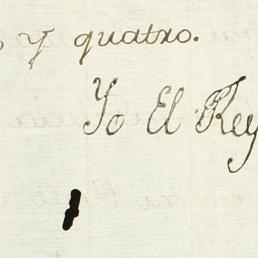 y quatro.
Yo El Rey